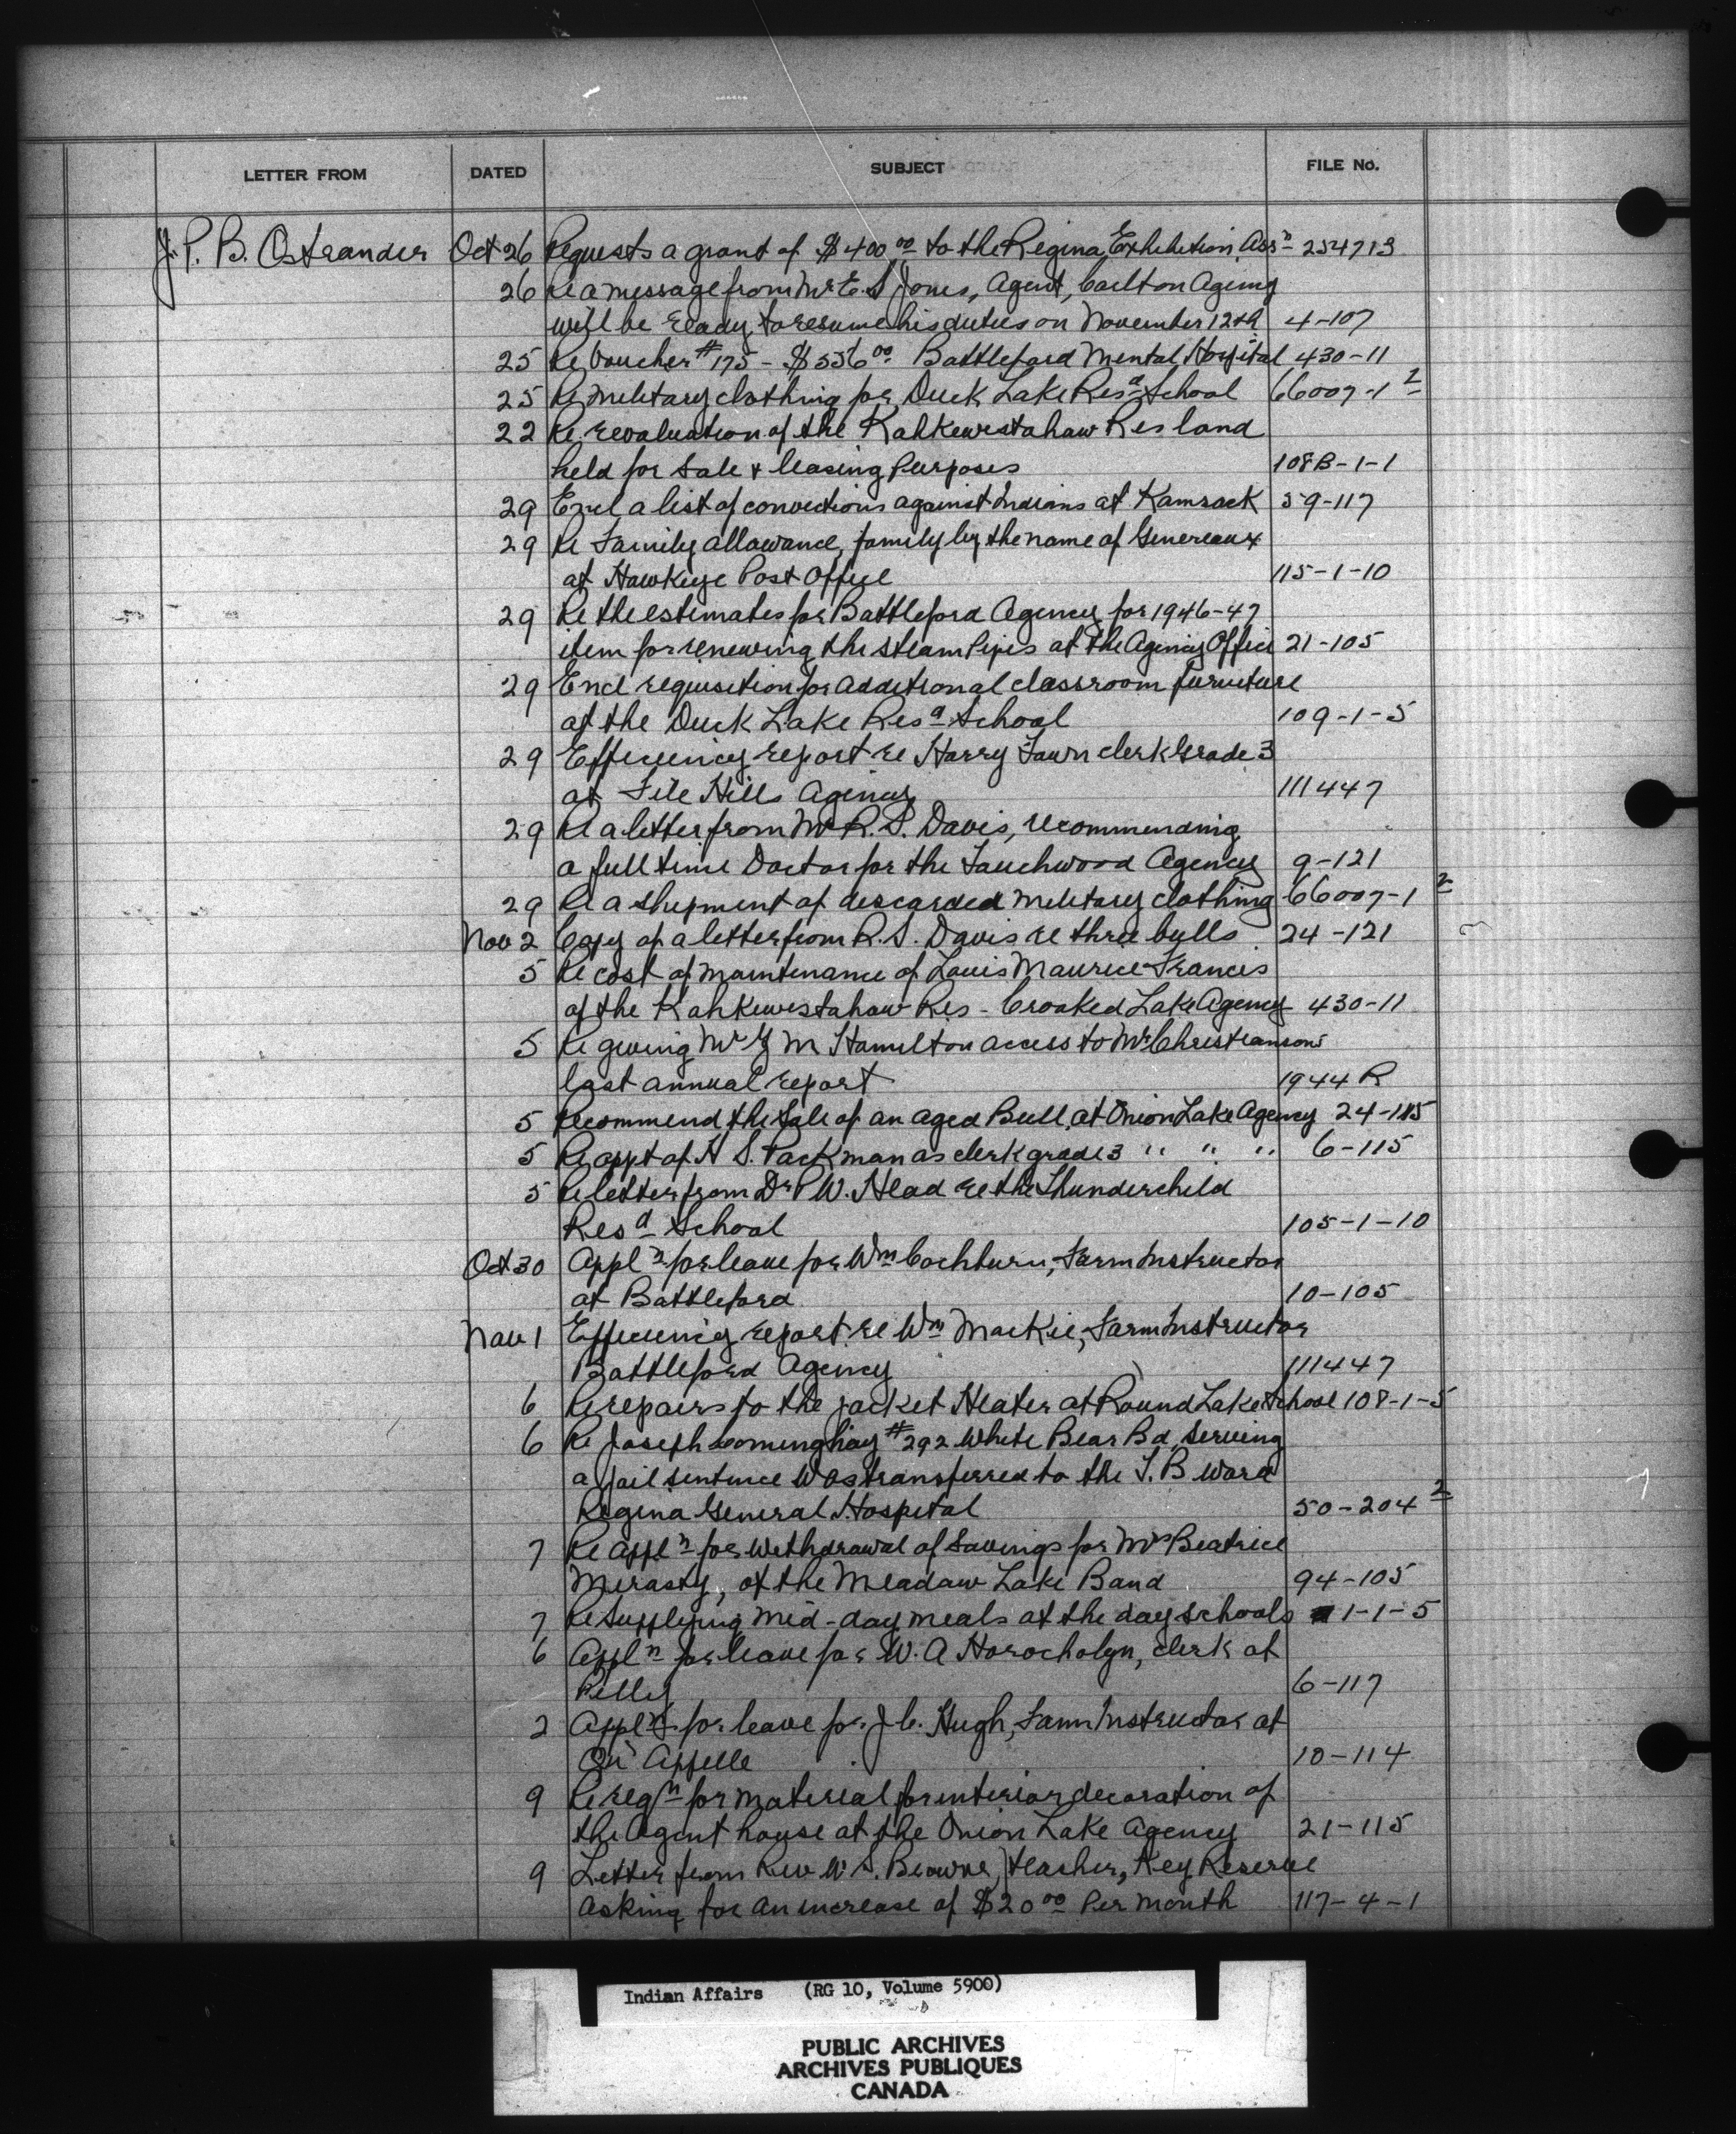 LETTER FROM DATED SUBJECT FILE No.
J. P. B. Ostrander Oct 26 Requests a grant of $400.00 to the Regina Exhibition Ass'n 254713
26 Re a message from Mr E. S Jones, Agent, Carlton Agency
will be ready to resume his duties on November 12th 4-107
25 Re Voucher #175 - $556.00 Battleford Mental Hospital 430-11
25 Re military clothing for Duck Lake Resd School 66007-1 2
22 Re revaluation of the Kahkewistahaw Res land
held for Sale & leasing Purposes 108B-1-1
29 Encl a list of convictions against Indians at Kamsack 59-117
29 Re Family allowance, family by the name of Genereaux
at Hawkeye Post Office 115-1-10
29 Re the estimates for Battleford Agency for 1946-47
item for renewing the steam Pipes at the Agency Office 21-105
29 Encl requisition for additional classroom furniture
at the Duck Lake Resd School 109-1-5
29 Efficiency report re Harry Fawn clerk Grade 3
at File Hills Agency 111447
29 Re a letter from Mr R. S. Davis, recommending
a full time Doctor for the Touchwood Agency 9-121
29 Re a shipment of discarded military clothing 66007-1 2
Nov 2 Copy of a letter from R. S. Davis re three bulls 24-121
5 Re cost of maintenance of Louis Maurice Francis
of the Kahkewistahaw Res - Crooked Lake Agency 430-11
5 Re giving Mr M Hamilton access to Mr Christiansons
last annual report 1944 R
5 Recommend the Sale of an aged Bull at Onion Lake Agency 24-115
5 Re appt of H S. Packman as clerk grade 3 " " " 6-115
5 Re letter from Dr P W. Head re the Thunderchild
Resd School 105-1-10
Oct 30 Appln for leave for Wm Cockburn, Farm Instructor
at Battleford 10-105
Nov 1 Efficiency report re Wm Mackie, Farm Instructor
Battleford Agency 111447
6 Re repairs to the jacket Heater at Round Lake School 108-1-5
6 Re Joseph Cominghay #292 White Bear Bd, Serving
a jail sentence was transferred to the T. B Ward
Regina General Hospital 50-204 2
7 Re appln for Withdrawal of Savings for Mrs Beatrice
Merasty, of the Meadow Lake Band 94-105
7 Re Supplying mid-day meals at the day schools 1-1-5
6 Appln for leave for W. A Horocholyn, clerk at
Pelly 6-117
2 Appln for leave for J C. Hugh, Farm Instructor at
Qu'Appelle 10-114
9 Re reqn for material for interior decoration of
the Agent house at the Onion Lake Agency 21-115
9 Letter from Rev W S. Browne, teacher, Key Reserve
asking for an increase of $20.00 Per month 117-4-1
Indian Affairs (RG 10, Volume 5900)
PUBLIC ARCHIVES
ARCHIVES PUBLIQUES
CANADA